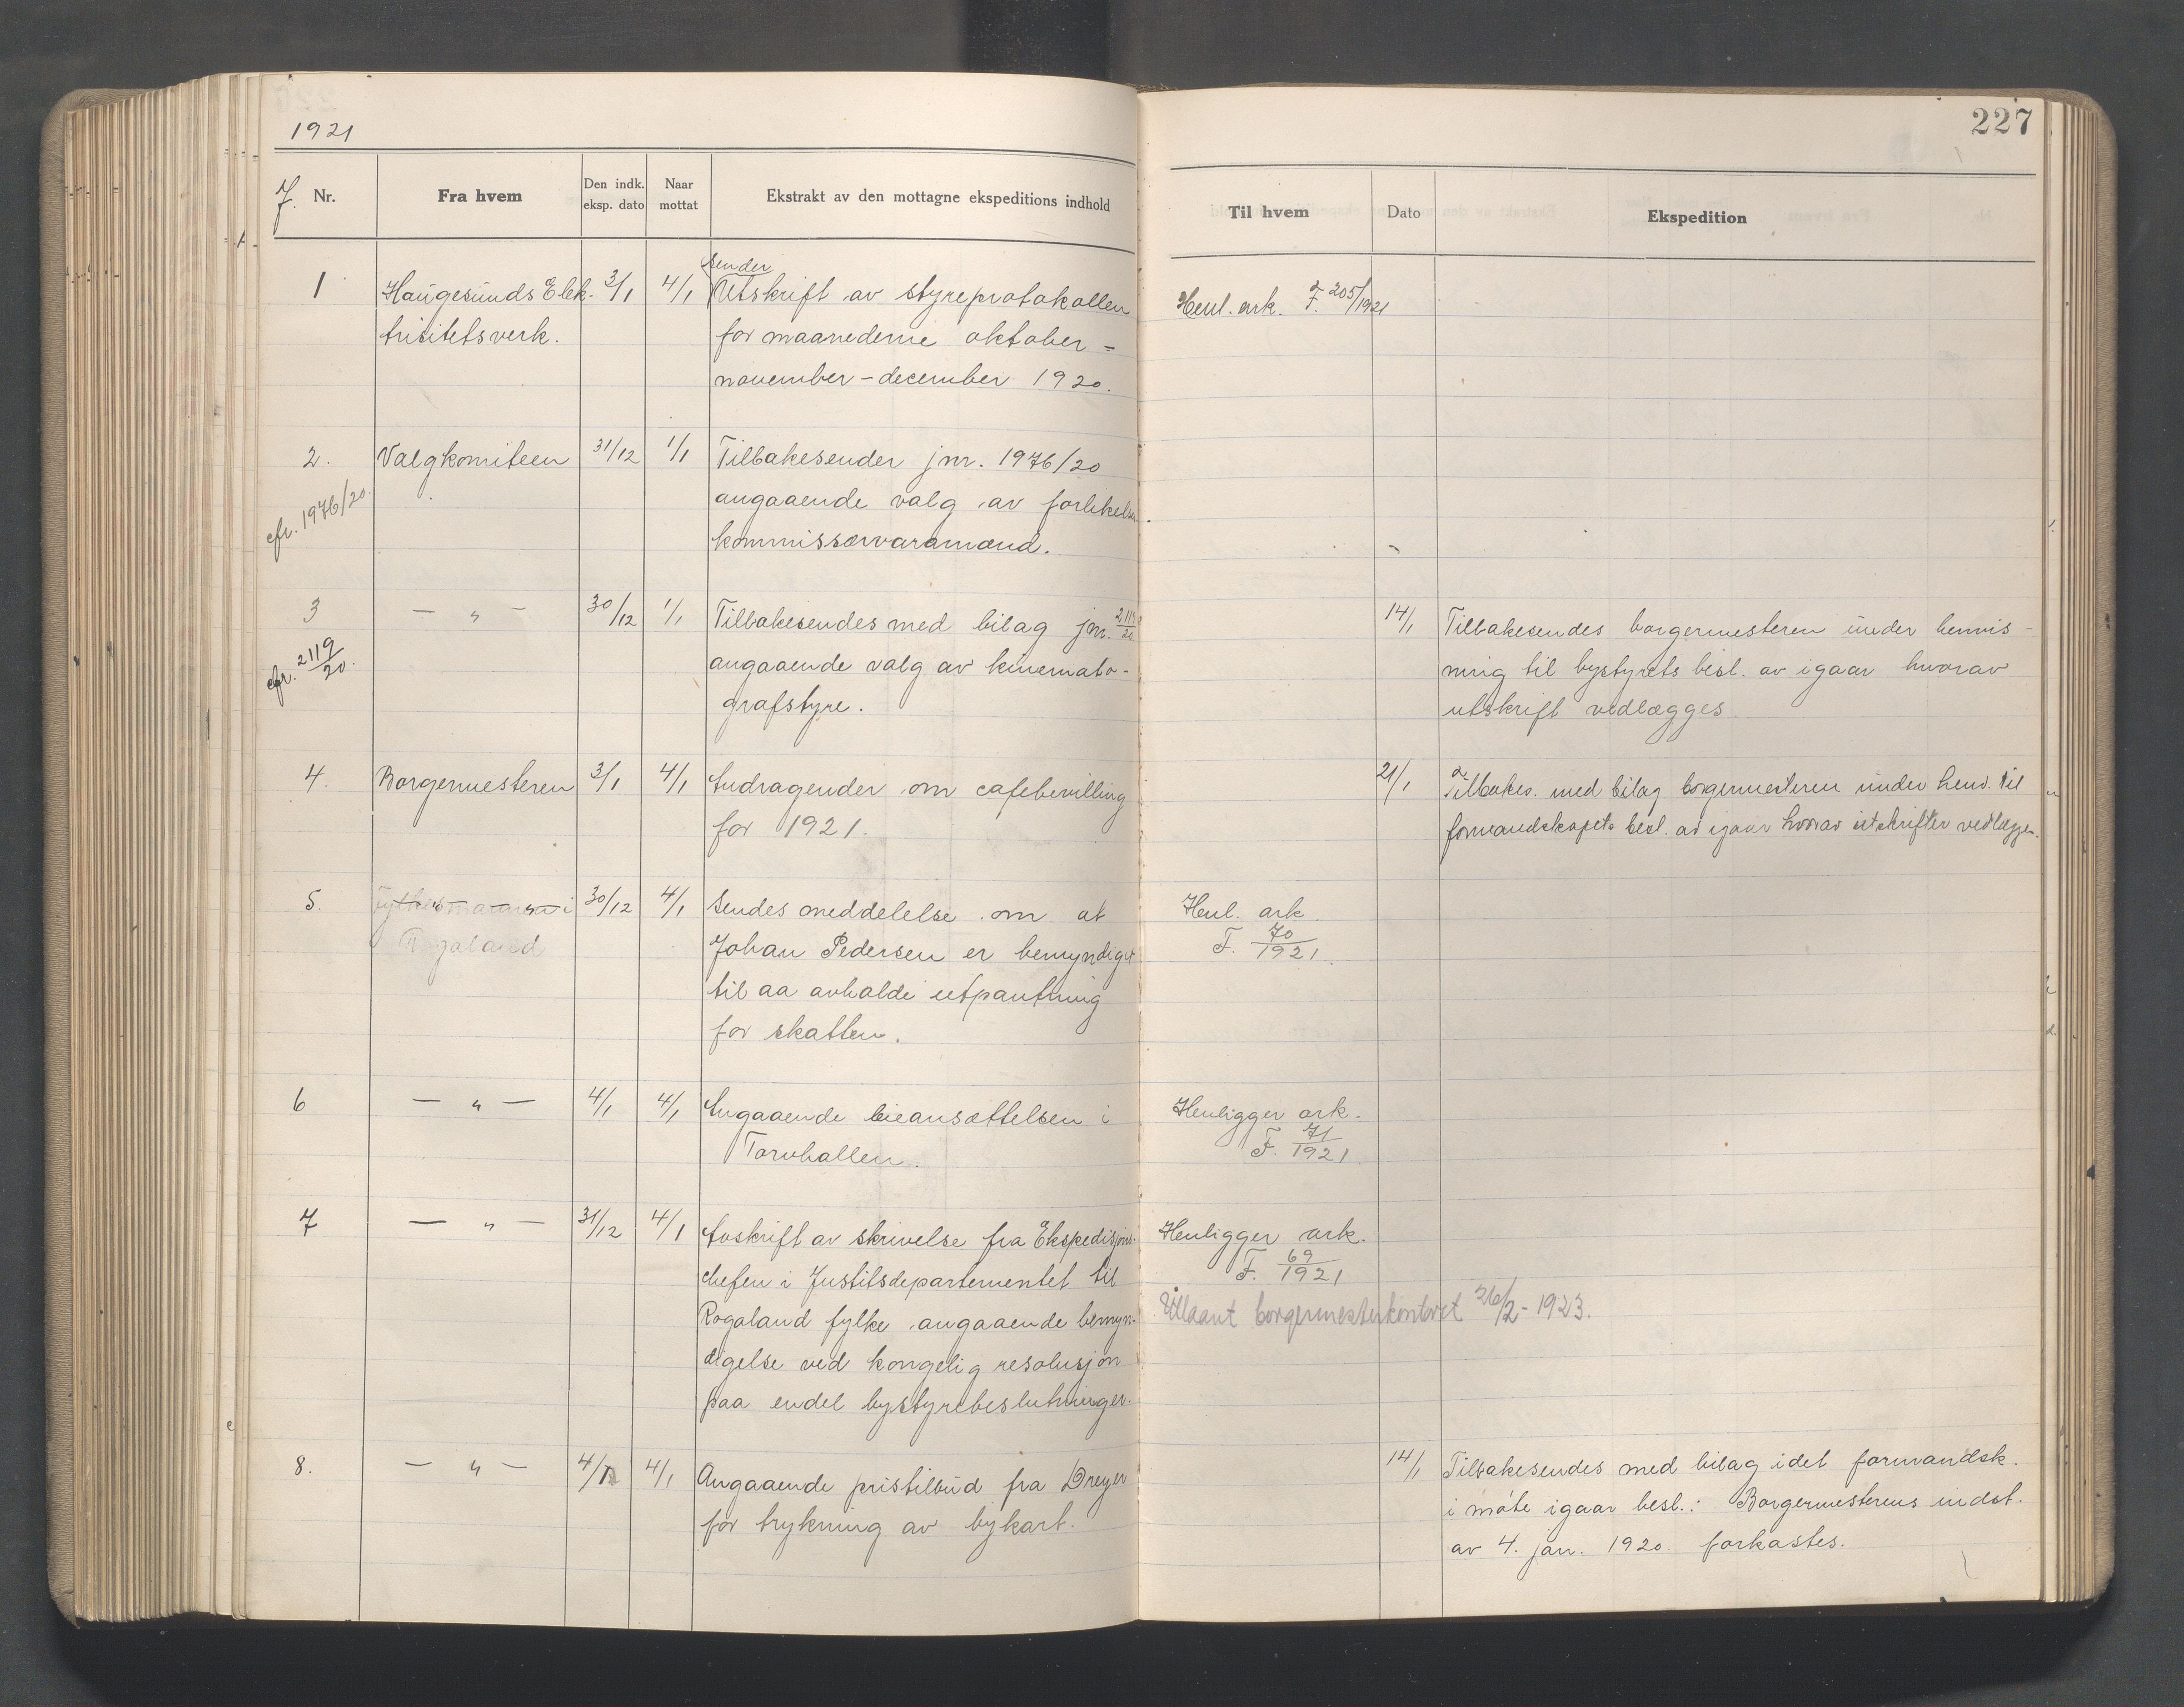 1921
227
J. Nr.
Fra hvem
Den indk. eksp. dato
Naar mottat
Ekstrakt av den mottagne ekspeditions indhold
Til hvem
Dato
Ekspedition
1
Haugesunds Elek-
trisitetsverk.
3/1
4/1
sender
Utskrift av styreprotokollen
for maanederne oktober -
november - december 1920.
Henl. ark. F. 205/1921
2.
cfr. 1976/20.
Valgkomiteen
31/12
1/1
Tilbakesender jnr. 1976/20
angaaende valg av forlikelses
kommissærvaramænd.
3
cfr. 2119/20.
— " —
30/12
1/1
Tilbakesendes med bilag jnr. 2119/20
angaaende valg av kinemato-
grafstyre.
14/1
Tilbakesendes borgermesteren under henvis-
ning til bystyrets besl. av igaar hvorav
utskrift vedlægges
4.
Borgermesteren
3/1
4/1
Andragender om cafebevilling
for 1921.
21/1
Tilbakes. med bilag borgermesteren under henv. til
formandskapets besl. av igaar hvorav utskrifter vedlægges.
5.
Fylkesmannen i
Rogaland
— " — " —
30/12
4/1
Sendes meddelelse om at
Johan Pedersen er bemyndiget
til aa avholde utpantning
for skatten.
Henl. ark.
F. 70/1921.
6
— " —
4/1
4/1
Angaaende leieansættelsen i
Torvhallen.
Henligger ark.
F. 71/1921.
7
— " —
31/12
4/1
Avskrift av skrivelse fra Ekspedisjons-
chefen i Justitsdepartementet til
Rogaland fylke angaaende bemyn-
digelse ved kongelig resolusjon
paa endel bystyrebeslutninger.
Henligger ark.
F. 69/1921
Utlaant borgermesterkontoret 26/2 - 1923.
8.
— " —
4/1
4/1
Angaaende pristilbud fra Dreyer
for trykning av bykart.
14/1
Tilbakesendes med bilag idet formandsk.
i møte igaar besl.: Borgermesterens indst.
av 4. jan. 1920 forkastes.